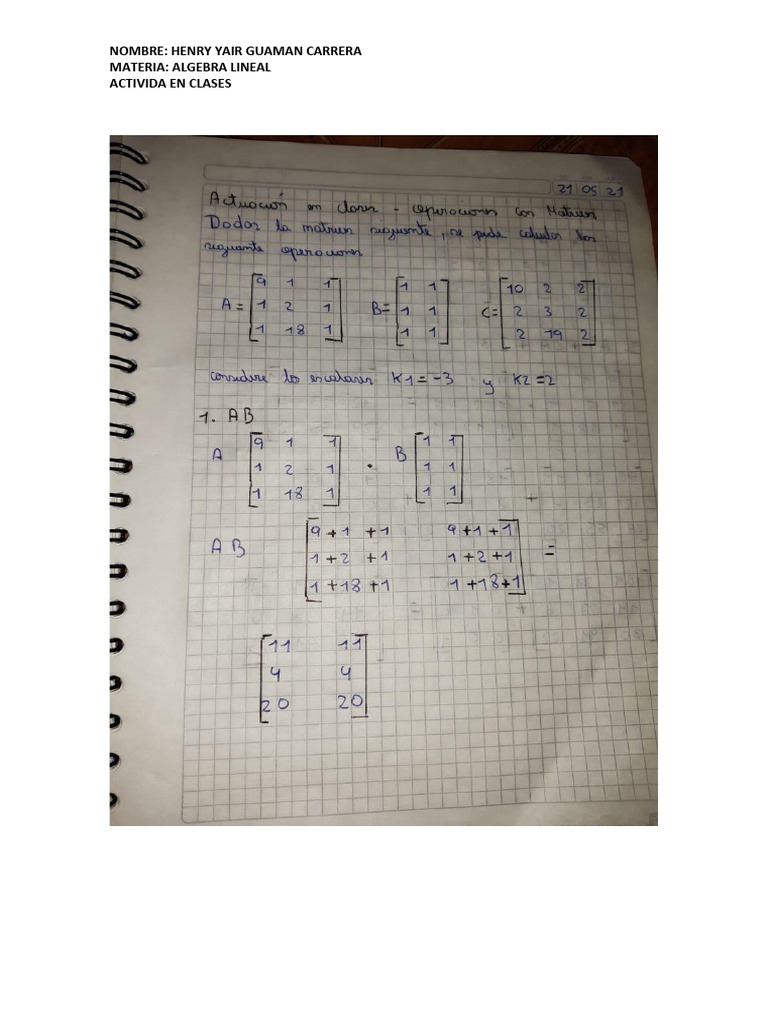 NOMBRE: HENRY YAIR GUAMAN CARRERA
MATERIA: ALGEBRA LINEAL
ACTIVIDA EN CLASES
21 05 21
Actuación en clases - operaciones con Matrices
Dodos la matrices siguiente, se pide calcular los
siguiente operaciones
9 1 1 1 1 10 2 2
A = 1 2 1 B= 1 1 C= 2 3 2
1 18 1 1 1 2 19 2
considere los escalares K1 = -3 y K2 = 2
1. AB
9 1 1 1 1
A 1 2 1 . B 1 1
1 18 1 1 1
9 + 1 + 1 9 + 1 + 1
AB 1 + 2 + 1 1 + 2 + 1 =
1 + 18 + 1 1 + 18 + 1
11 11
4 4
20 20